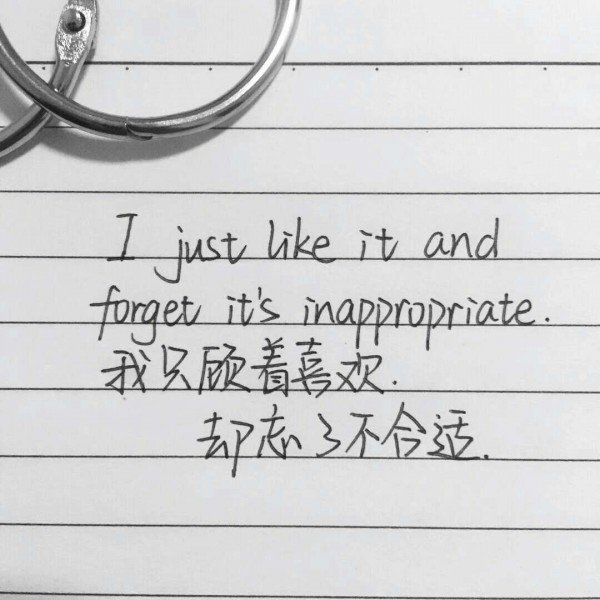 I just like it and
forget it's inappropriate.
我只顾着喜欢.
却忘了不合适.